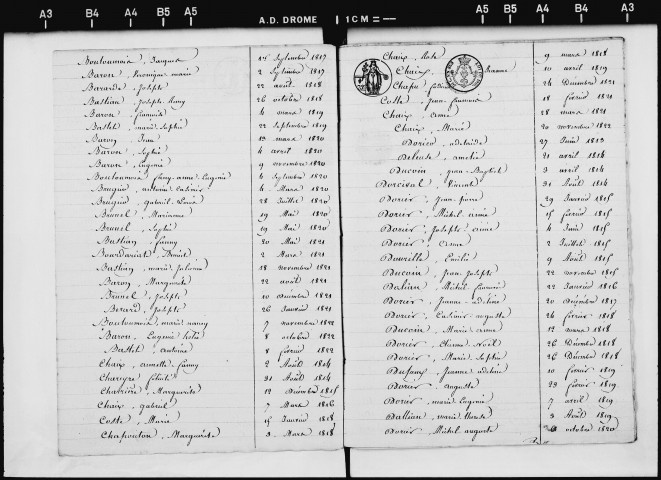 A3 B4 A4 B5 A5 A.D. DROME 1 CM A5 B5 A4 B4 A3
Boutounnoix, Jacques 27 Septembre 1817
Baron, Véronique marie 2 Septembre 1817
Berard, Joseph 22 avril 1818
Bastian, Joseph 26 octobre 1818
Baron, François 4 mars 1819
Bastet, marie Sophie 22 Septembre 1819
Baron, Jean 13 mars 1820
Baron, Sophie 4 avril 1820
Baron, Eugenie 9 novembre 1820
Boutounnoix, fanny anne Eugenie 6 Septembre 1820
Brugier, antoine Casimir 4 Mars 1820
Brugier, gabriel 28 Juillet 1820
Brunel, Marianne 19 Mai 1820
Brunel, Sophie 19 Mai 1820
Bastian, fanny 20 Mai 1821
Bourdariat, Benoit 2 Mars 1821
Bastian, marie Julienne 18 novembre 1821
Baron, Marguerite 22 août 1821
Brunel, Joseph 10 Décembre 1821
Berard, Joseph 26 Janvier 1821
Boutounnoix, marie nancy 7 novembre 1822
Baron, Eugenie 8 octobre 1822
Bastet, antoine 8 février 1822
Chaix, armette fanny 2 Août 1814
Chareyre 31 Août 1814
Chabrière, Marguerite 12 Décembre 1815
Chaix, gabriel 7 Mars 1816
Coste, Marie 15 février 1818
Chapouton, Marguerite 3 Mars 1818
Chaix, 9 mars 1818
Chaix, Jeanne 10 avril 1819
26 Décembre 1821
Coste, Jean francois 18 février 1821
Chaix, 28 mars 1821
Chaix, Marie 20 novembre 1822
Dorier, adelaide 27 Juin 1813
Deleuse, amelie 21 avril 1814
Ducoin, jean Baptiste 3 avril 1814
Dorcival, Vincent 31 Août 1814
Dorier, Jean pierre 29 Janvier 1815
Dorier, Michel 15 février 1815
Dorier, Joseph 4 Juin 1815
Dorier, 2 Juillet 1815
Dourille, Emilie 9 Août 1815
Ducoin, Jean Joseph 22 novembre 1815
Dalian, Michel francois 22 Janvier 1816
Dorier, Jeanne adelaide 20 Décembre 1817
Dorier, Casimir auguste 26 février 1818
Ducoin, Marie 12 mars 1818
Dorier, Etienne noël 26 Décembre 1818
Dorier, Marie Sophie 26 Décembre 1818
Jeanne adelaide 10 février 1819
Dorier, auguste 23 février 1819
Dorier, marie Eugenie 7 avril 1819
Dallian, marie therese 3 Août 1819
Dorier, Michel auguste 26 octobre 1820